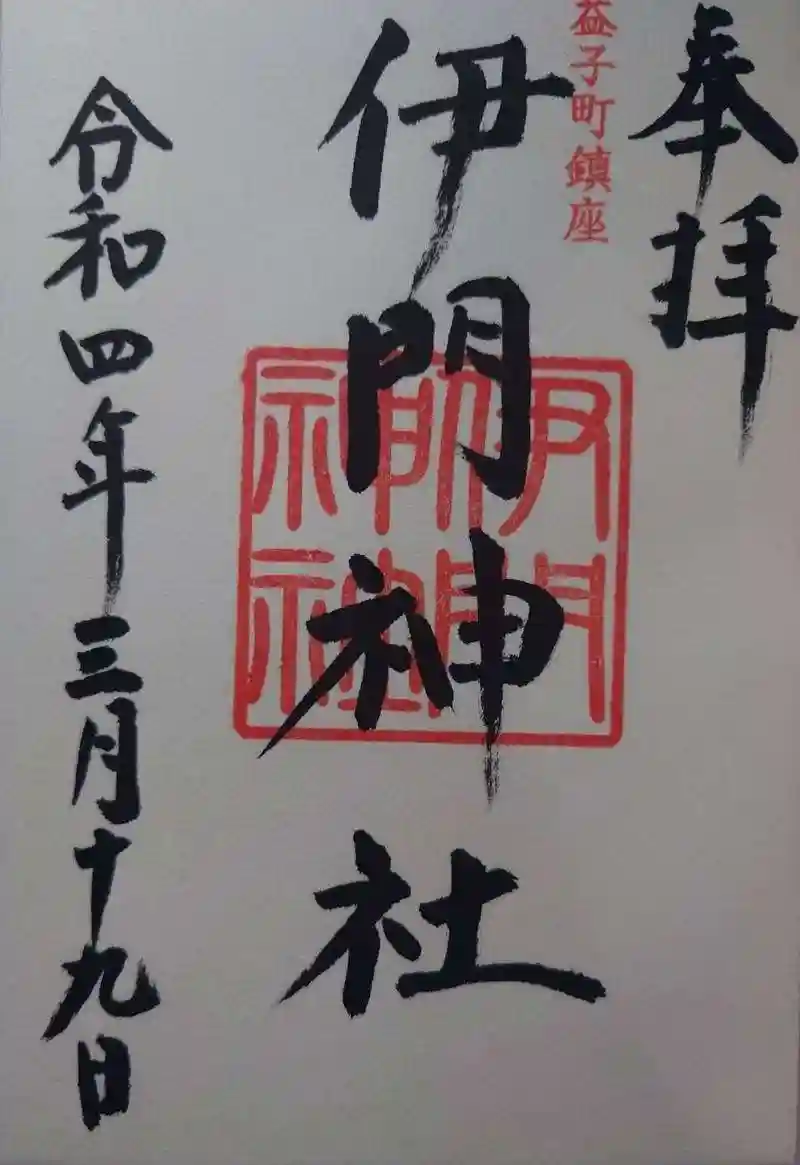 奉拝
益子町鎮座
伊門神社
伊門神社
令和四年三月十九日